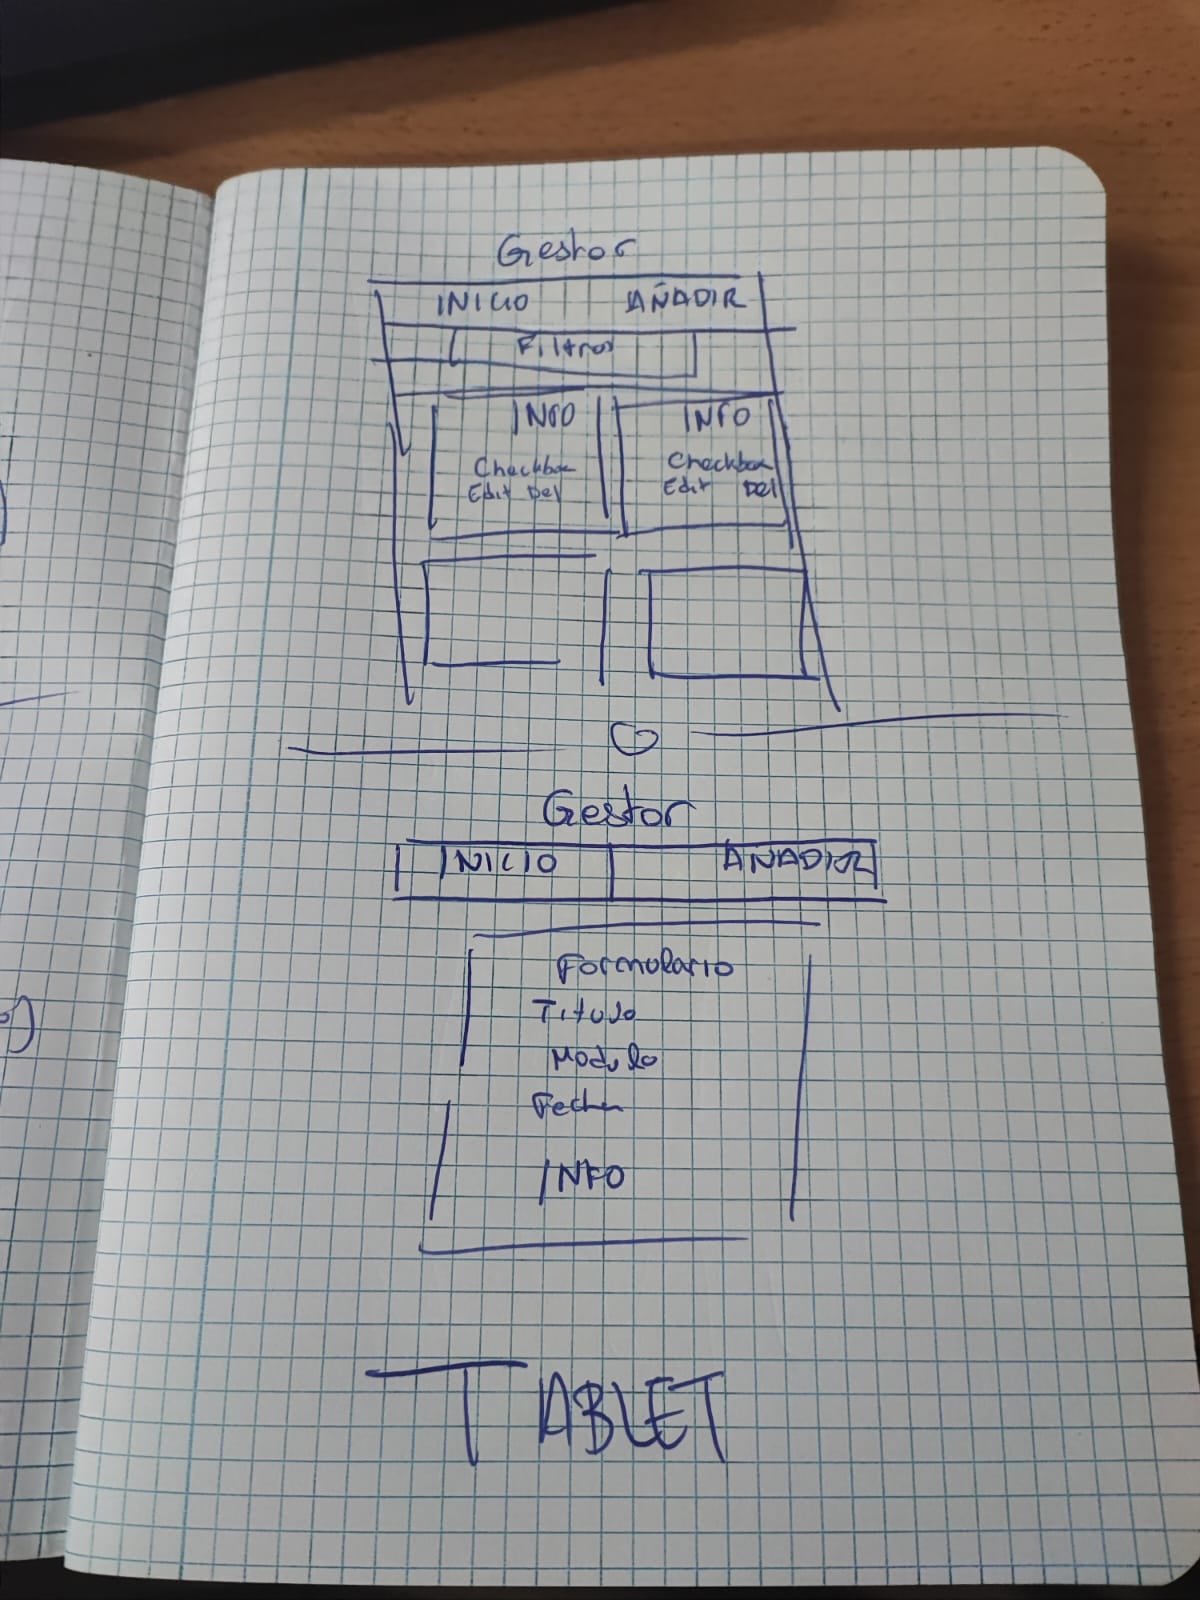 Gestor
INICIO AÑADIR
Filtros
INFO INFO
Checkbox Checkbox
Edit Del Edit Del
Gestor
INICIO AÑADIR
Formulario
Titulo
Modulo
Fecha
INFO
TABLET